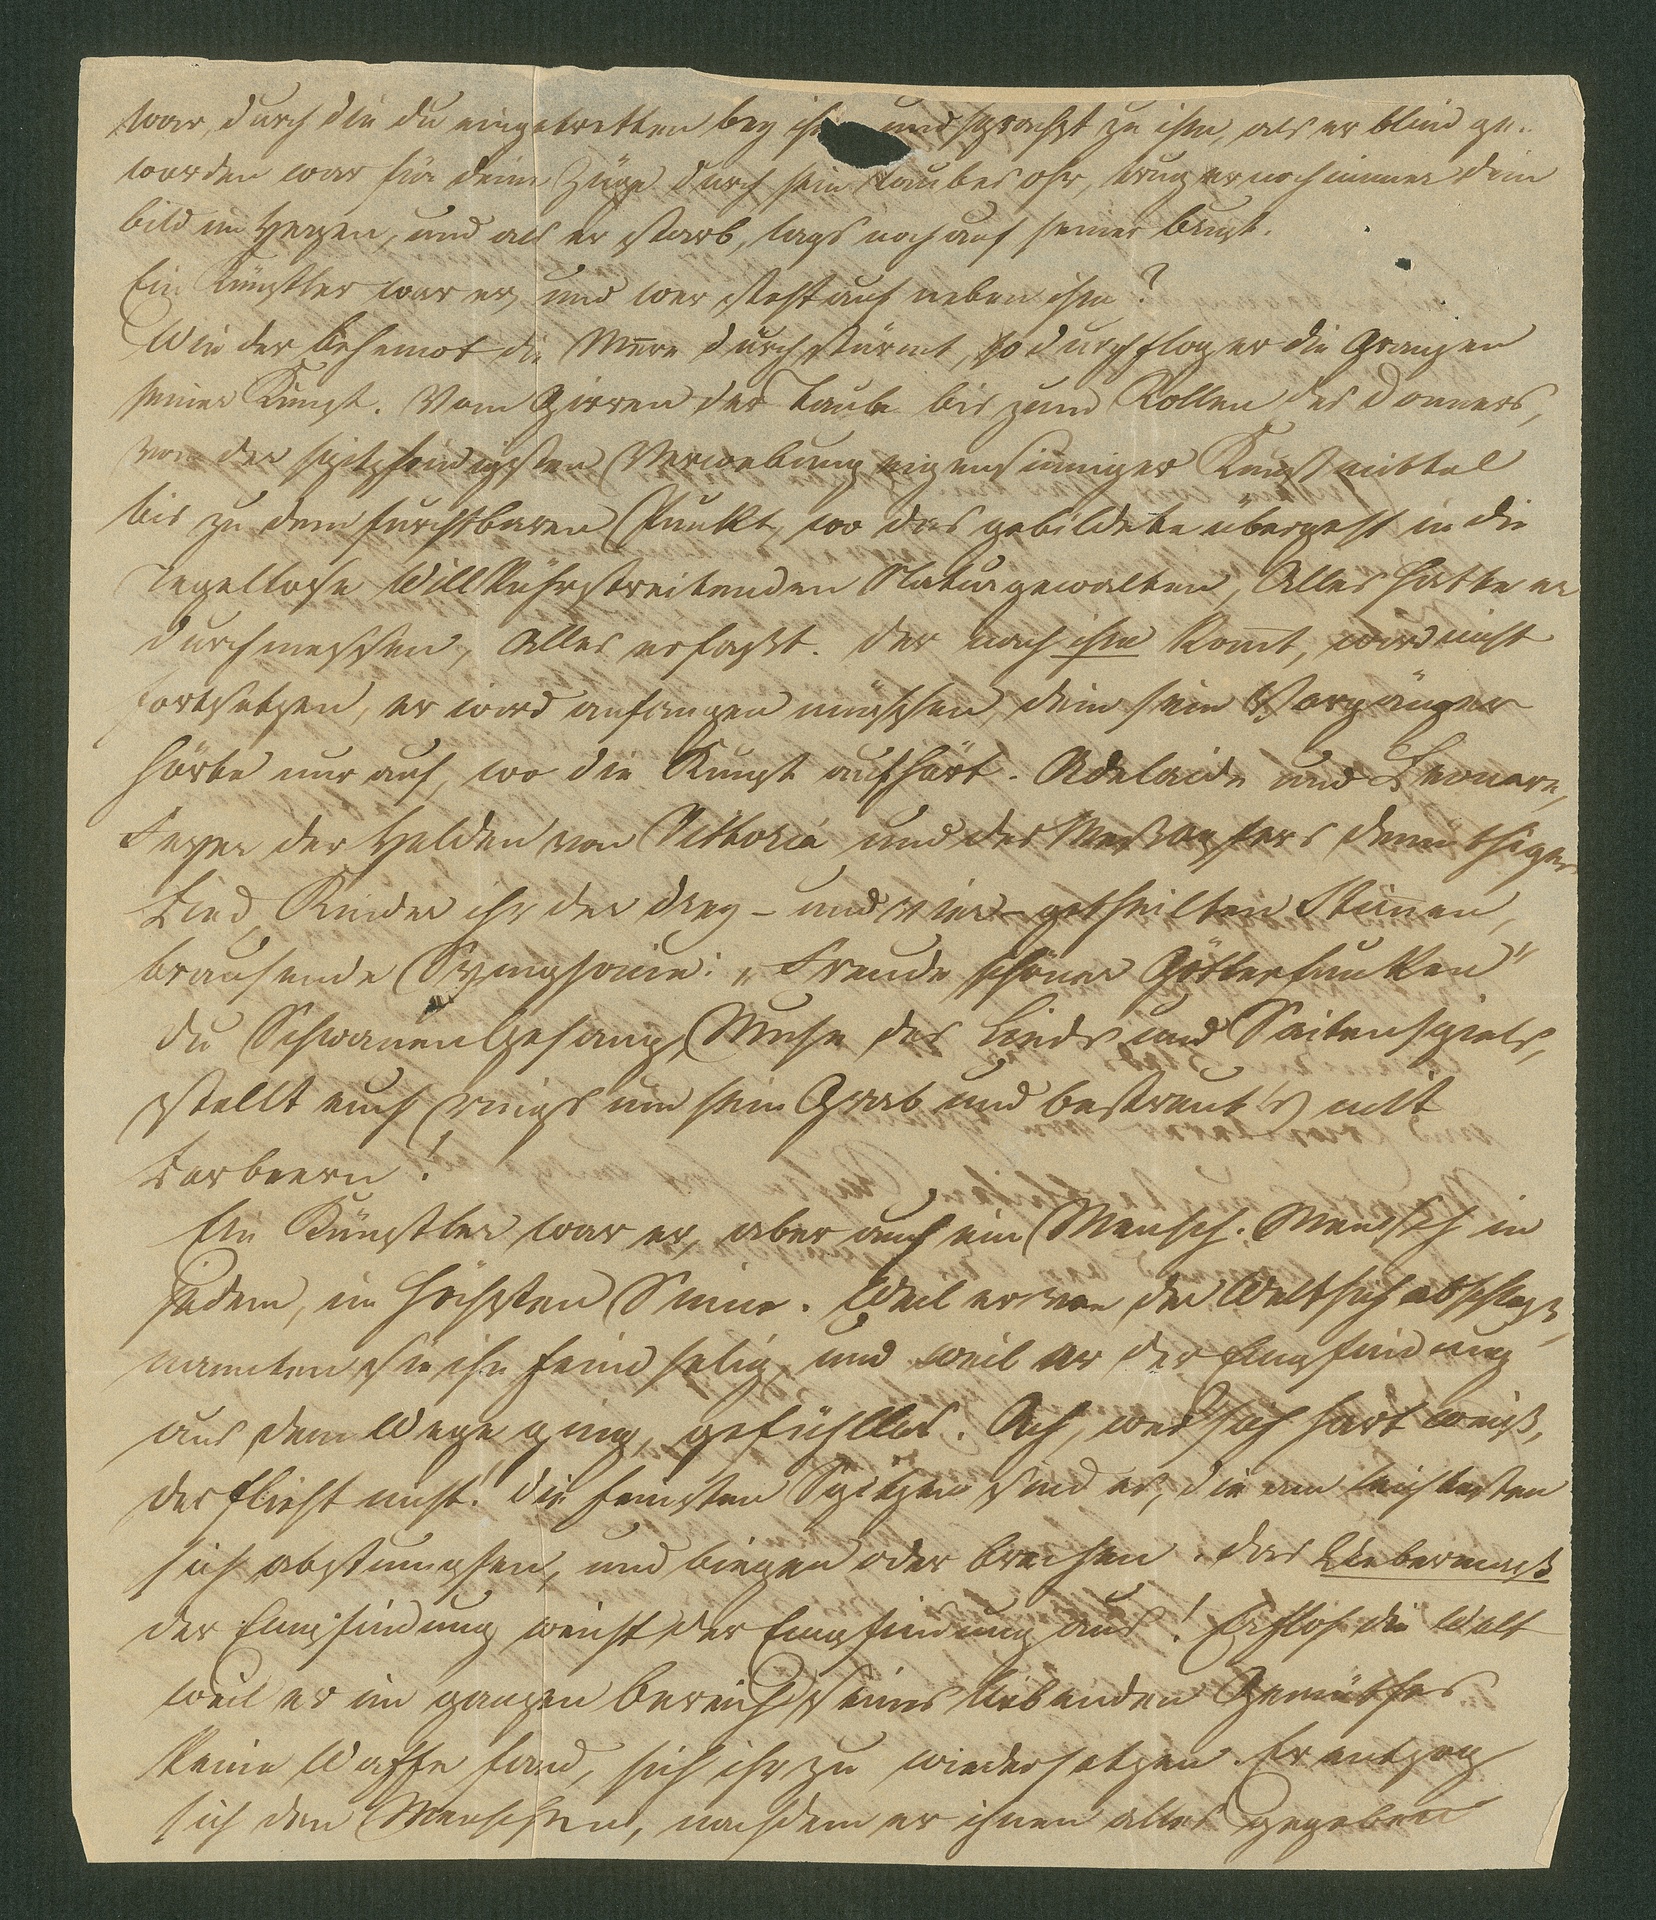 war, durch die du eingetretten bey ihm und sprachst zu ihm, als er blind ge-
worden war für deine Züge durch sein taubes ohr, trug er noch immer dein
bild im Herzen, und als er starb, lags noch auf seiner brust.
Ein Künstler war er, und wer steht auf neben ihm?
Wie der behemot die Meere durchstürmt, so durchflog er die Granzen
seiner Kunst. Vom Girren der Taube bis zum Rollen des Donners,
von der spitzfindigsten Verwebung eigensinniger Kunstmittel
bis zu dem furchtbaren Punkt, wo das gebildete übergeht in die
regellose Willkühr streitenden Naturgewalten, Alles hatte er
durchmessen, Alles erfaßt. der nach ihm komt, wird nicht
fortsetzen, er wird anfangen müssen, denn sein Vorgänger
hörte nur auf, wo die Kunst aufhört. Adelaide und Leonore,
Feyer der Helden von Vittoria und des Meßopfers demüthiges
Lied, Kinder ihr der drey- und vier-getheilten Stimen,
brausende Symphonie: „Freude schöner Götterfunken"
du Schwanengesang, Muse des Lieds und Saitenspiels,
stellt euch rings um sein Grab und bestreut's mit
Lorbeern!
Ein Künstler war er, aber auch ein Mensch. Mensch in
jedem, im höchsten Sinne. Weil er von der Welt sich abschloß,
nannten sie ihn feindselig, und weil er der Empfindung
aus dem Wege ging, gefühllos. Ach, wer sich hart weiß,
der flieht nicht! die feinsten Spitzen sind es, die am leichtesten
sich abstumpfen, und biegen oder brechen. das Uebermaß
der Empfindung weicht der Empfindung aus! Er floh die Welt
weil er im ganzen bereich seines liebenden Gemüthes
keine Waffe fand, sich ihr zu wiedersetzen. Er entzog
sich den Menschen, nachdem er ihnen alles gegeben